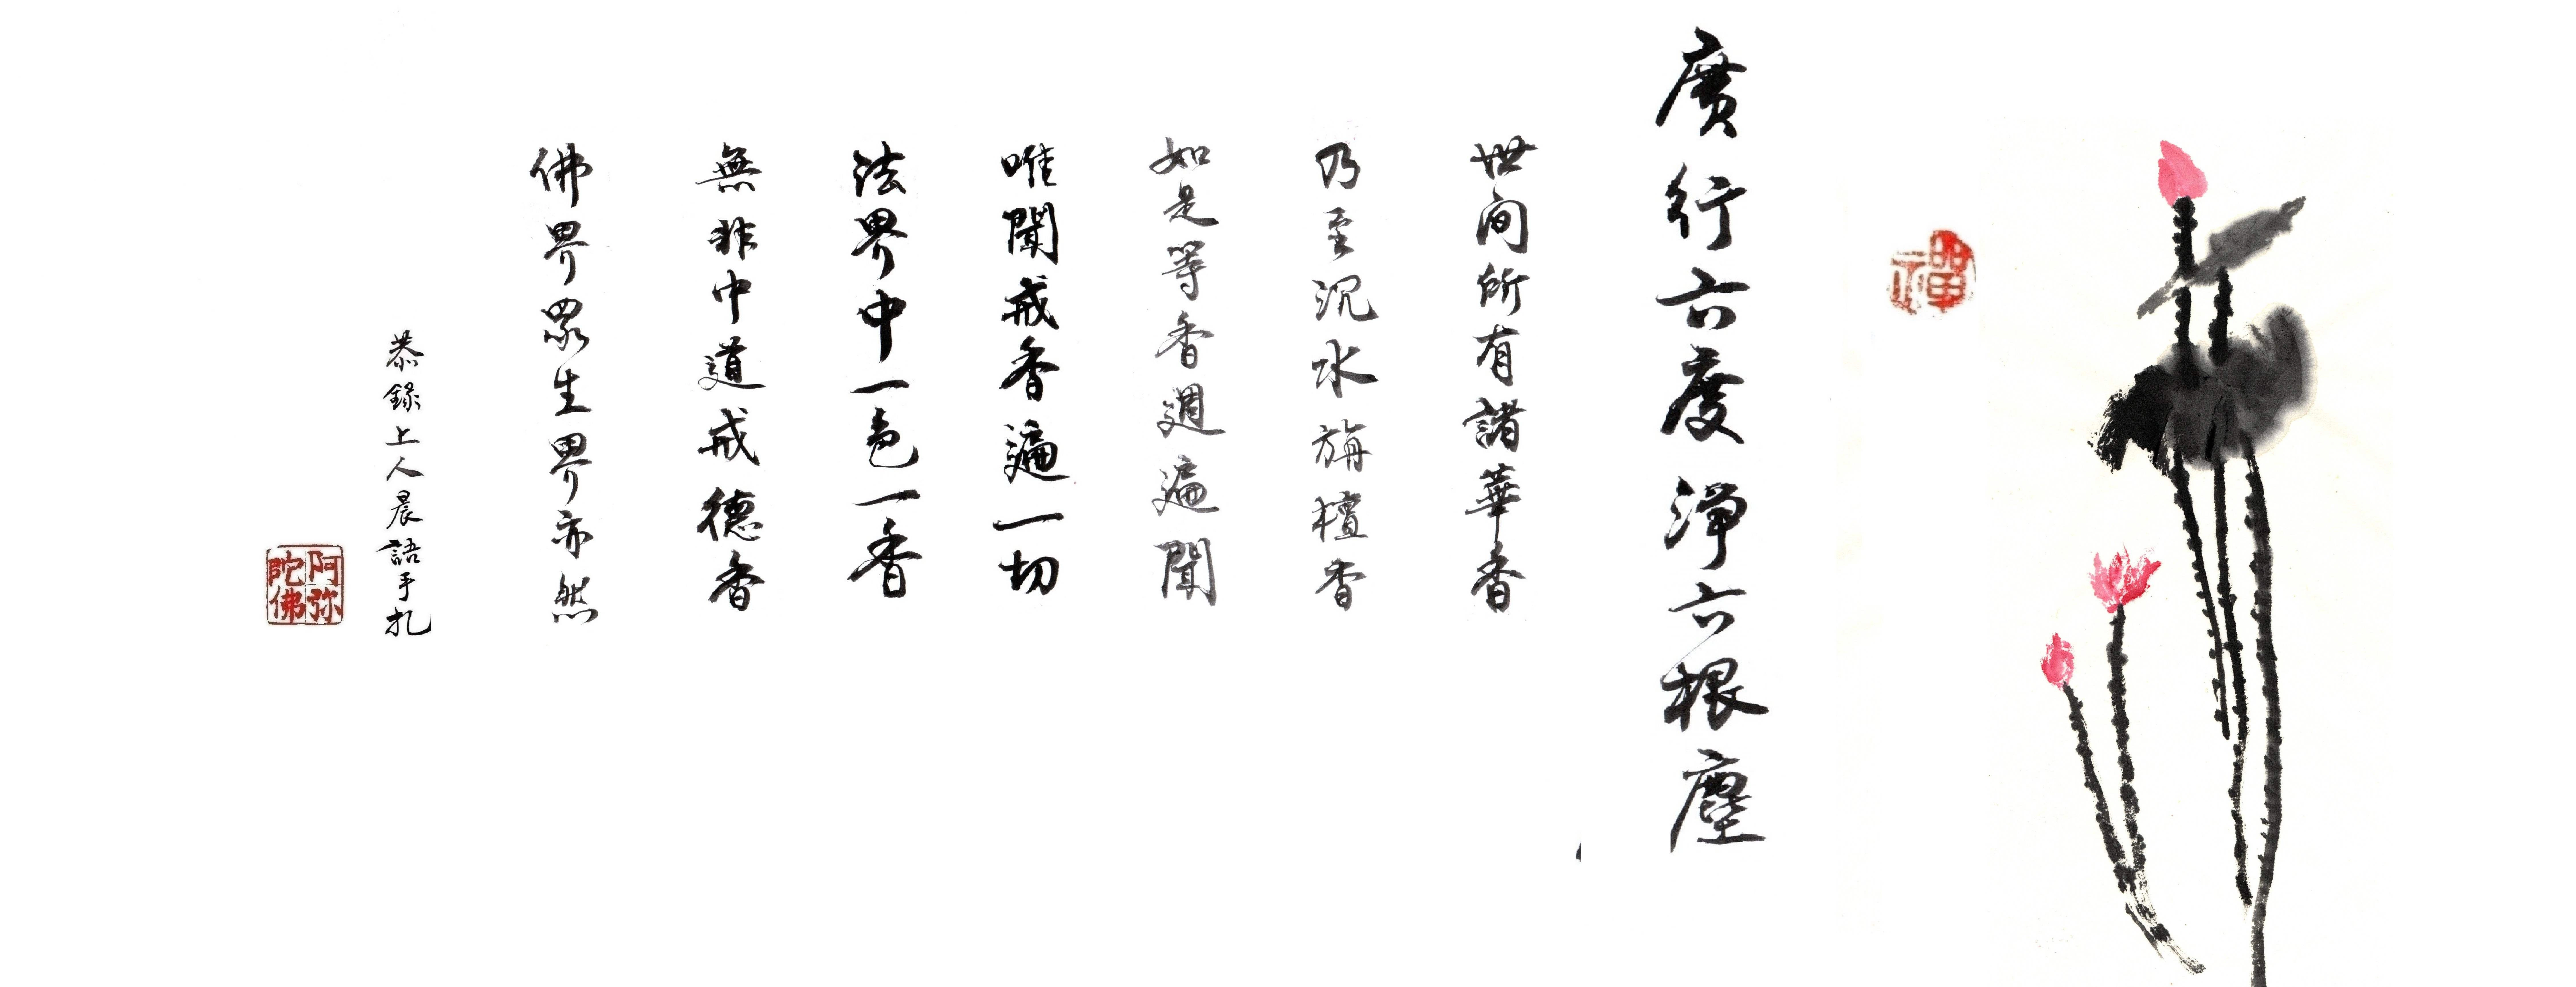 禪
廣行六度淨六根塵
世間所有諸華香
乃至沉水旃檀香
如是等香週遍聞
唯聞戒香遍一切
法界中一色一香
無非中道戒德香
佛界眾生界亦然
恭錄上人晨語手扎
阿弥陀佛